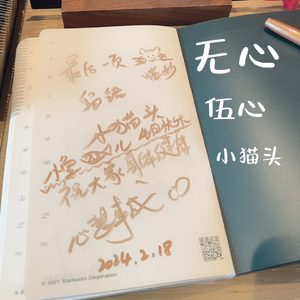 最后一页
喵妙
留给
小猫头
祝大家身体健康
心想事成
2024.2.18
© 2021 Starbucks Corporation.
无心
伍心
小猫头